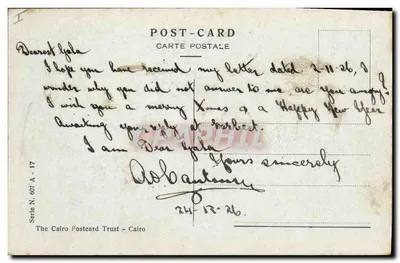 POST-CARD
CARTE POSTALE
Dearest Gala
I hope you have received my letter dated 2-11-26, I
wonder why you did not answer to me are you angry?
I wish you a merry Xmas & a Happy New Year
Awaiting your reply at
I am Dear Gala
Yours sincerely
24-12-26.
Serie N. 607 A - 17
The Cairo Postcard Trust - Cairo